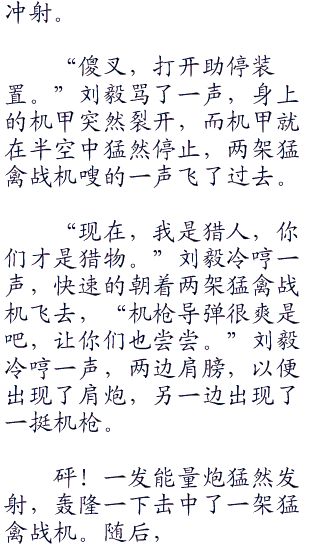 冲射。
“傻叉，打开助停装
置。”刘毅骂了一声，身上
的机甲突然裂开，而机甲就
在半空中猛然停止，两架猛
禽战机嗖的一声飞了过去。
“现在，我是猎人，你
们才是猎物。”刘毅冷哼一
声，快速的朝着两架猛禽战
机飞去，“机枪导弹很爽是
吧，让你们也尝尝。”刘毅
冷哼一声，两边肩膀，以便
出现了肩炮，另一边出现了
一挺机枪。
砰！一发能量炮猛然发
射，轰隆一下击中了一架猛
禽战机。随后，